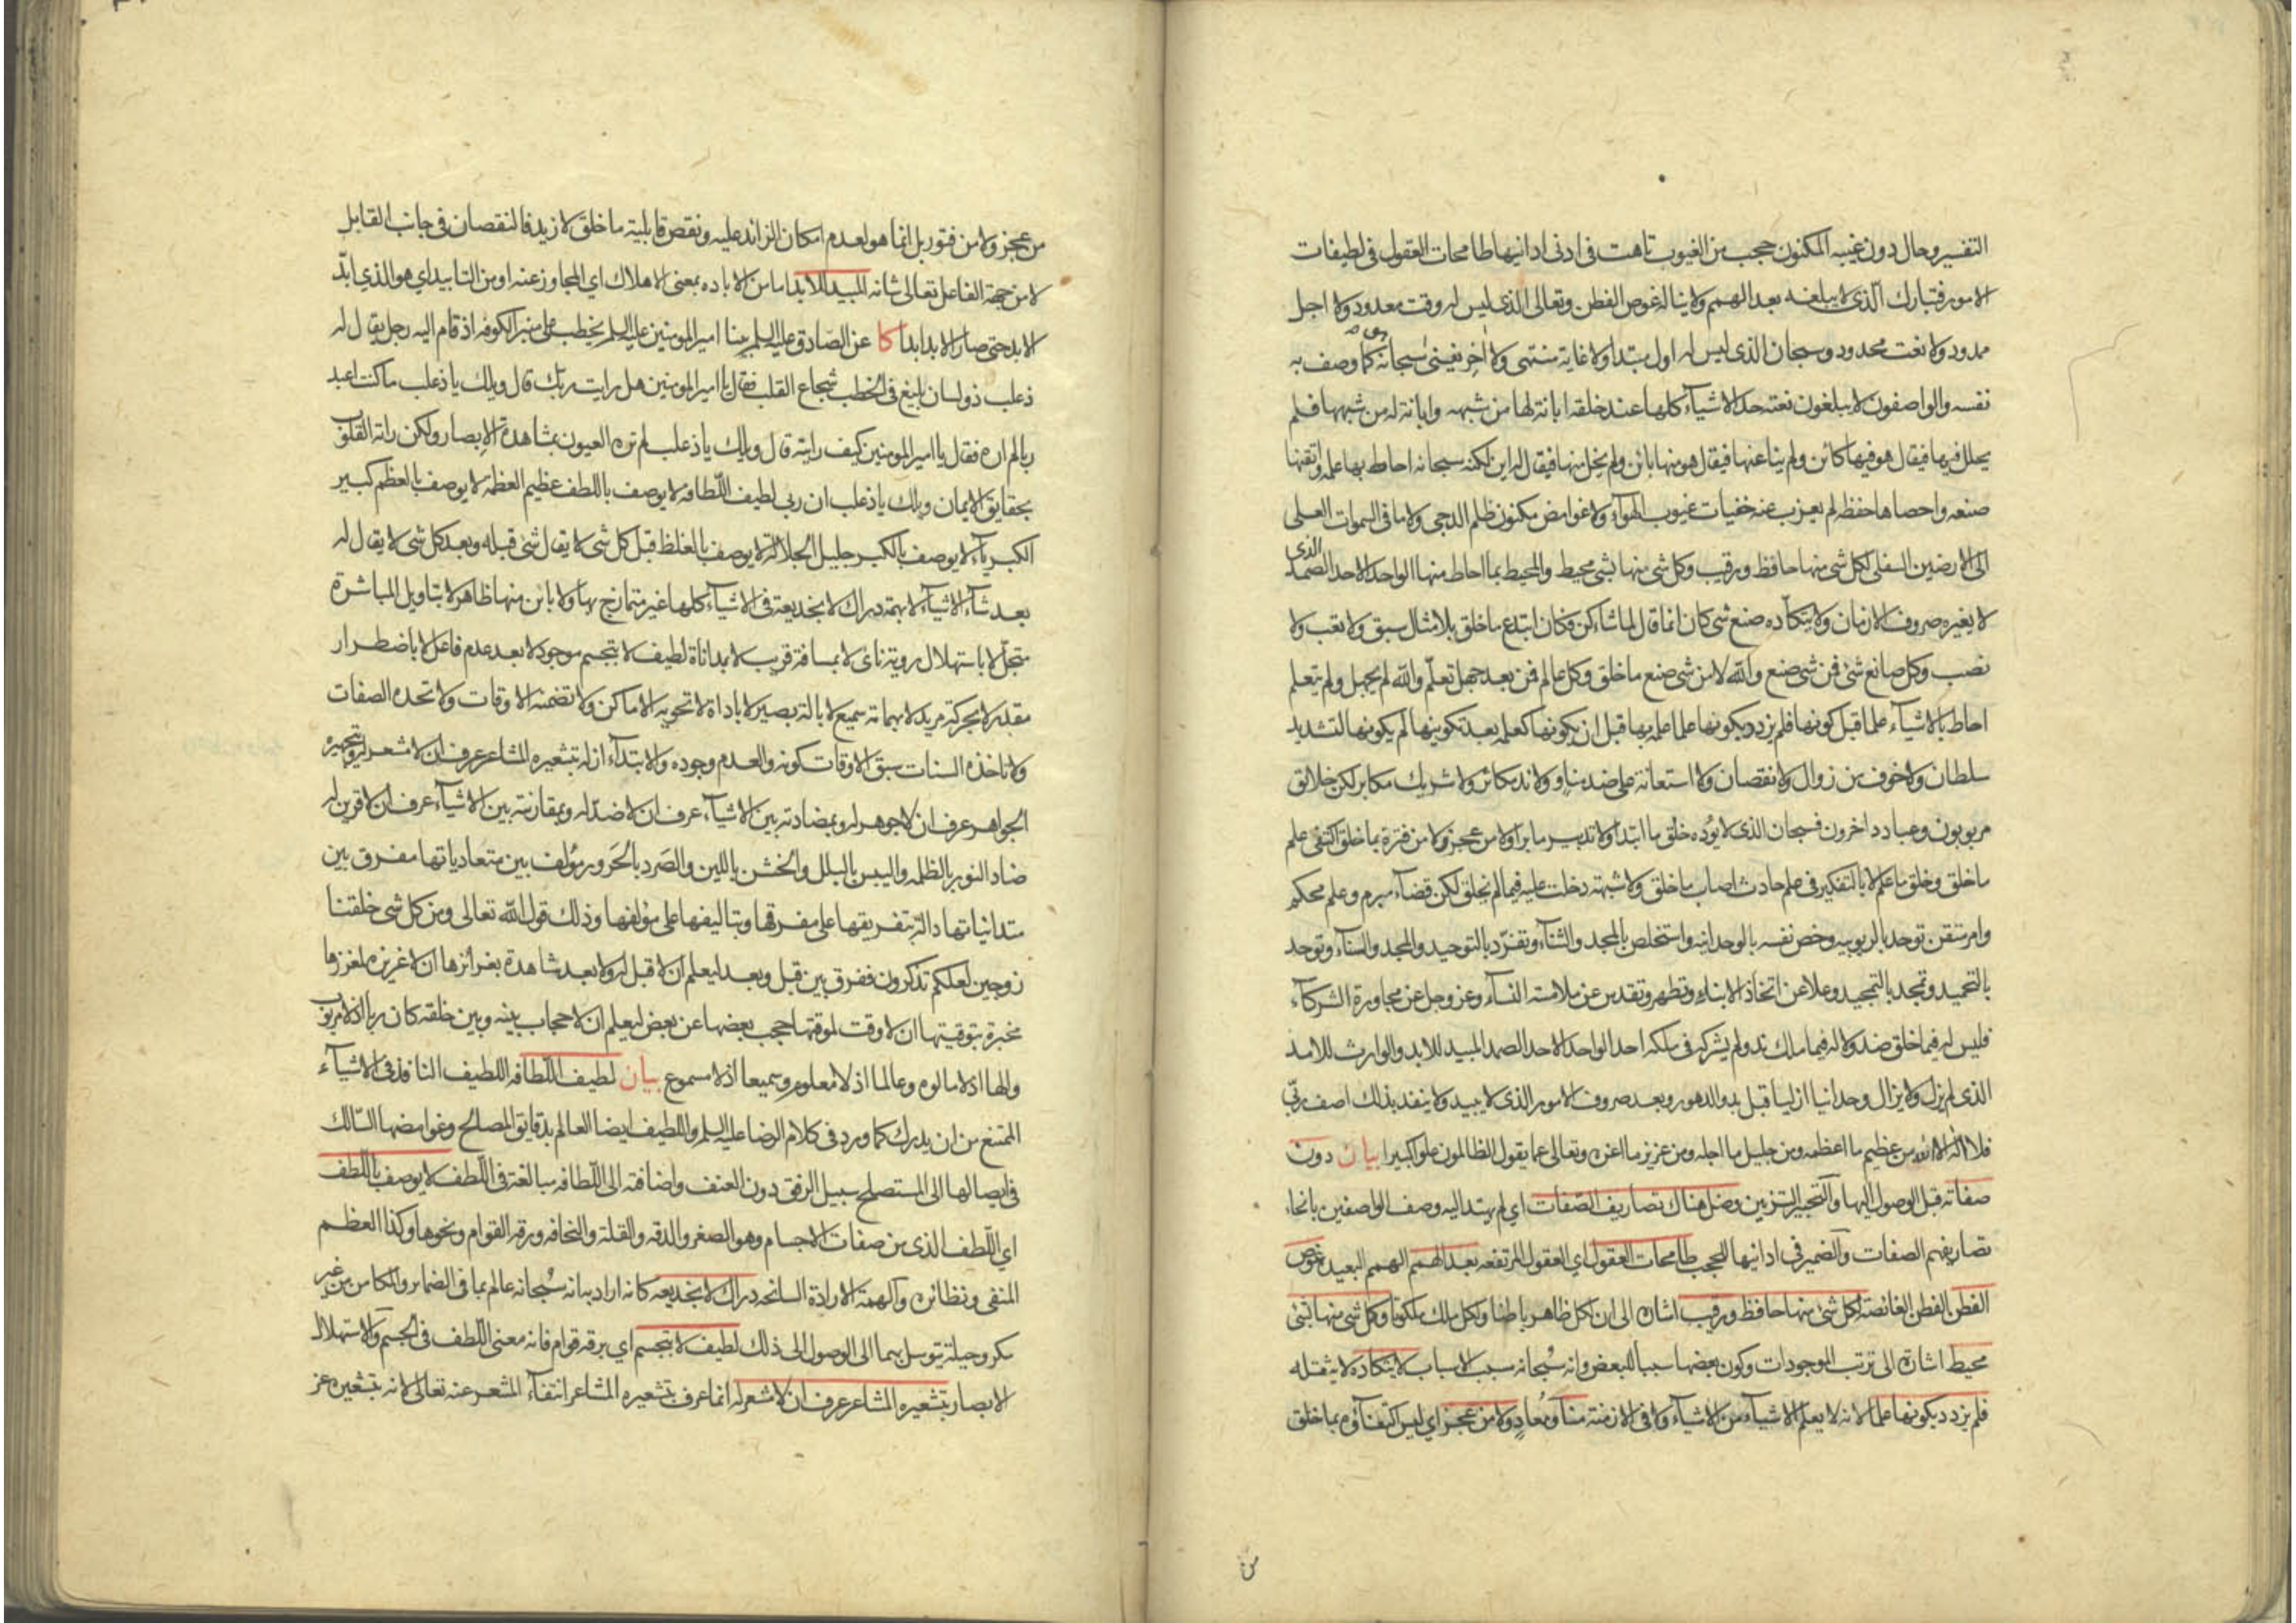 التفسير وحال دون غيبه المكنون حجب من الغيوب تاهت فى ادنى ادانيها طامحات العقول فى لطيفات
الامور فتبارك الذى لا يبلغه بعد الهمم ولا يناله غوص الفطن وتعالى الذى ليس له وقت معدود ولا اجل
ممدود ولا نعت محدود وسبحان الذى ليس له اول مبتدا ولا غاية منتهى ولا اخر يفنى سبحانه هو كما وصف به
نفسه والواصفون لا يبلغون نعته حد الاشياء كلها عند خلقه ابانة لها من شبهه وابانة له من شبهها فلم
يحلل فيها فيقال هو فيها كائن ولم ينا عنها فيقال هو منها بائن ولم يخل منها فيقال له اين لكنه سبحانه احاط بها علمه واتقنها
صنعه واحصاها حفظه لم يعزب عنه خفيات غيوب الهواء ولا غوامض مكنون ظلم الدجى ولا ما فى السموات العلى
الى الارضين السفلى لكل شى منها حافظ ورقيب وكل شى منها بشى محيط والمحيط بما احاط منها الواحد الاحد الصمد الذى
لا يغيره صروف الازمان ولا يتكأده صنع شى كان انما قال لما شاء كن فكان ابتدع ما خلق بلا مثال سبق ولا تعب ولا
نصب وكل صانع شئ فمن شى صنع والله لا من شى صنع ما خلق وكل عالم فمن بعد جهل تعلم والله لم يجهل ولم يتعلم
احاط بالاشياء علما قبل كونها فلم يزدد بكونها علما علمه بها قبل ان يكونها كعلمه بعد تكوينها لم يكونها لتشديد
سلطان ولا خوف من زوال ولا نقصان ولا استعانة على ضد مناو ولا ند مكاثر ولا شريك مكابر لكن خلائق
مربوبون وعباد داخرون فسبحان الذى لا يؤده خلق ما ابتدا ولا تدبير ما برا ولا من عجز ولا من فترة بما خلق اكتفى علم
ما خلق وخلق ما علم لا بالتفكير فى علم حادث اصاب ما خلق ولا شبهة دخلت عليه فيما لم يخلق لكن قضاء مبرم وعلم محكم
وامر متقن توحد بالربوبيه وخص نفسه بالوحدانيه واستخلص بالمجد والثناء وتفرد بالتوحيد والمجد والسناء وتوحد
بالتحميد وتمجد بالتمجيد وعلا عن اتخاذ الابناء وتطهر وتقدس عن ملامسة النساء وعز وجل عن مجاورة الشركاء
فليس له فيما خلق ضد ولا له فيما ملك ند ولم يشركه فى ملكه احد الواحد الاحد الصمد المبيد للابد والوارث للامد
الذى لم يزل ولا يزال وحدانيا ازليا قبل بدو الدهور وبعد صروف الامور الذى لا يبيد ولا ينفد بذلك اصف ربى
فلا اله الا الله من عظيم ما اعظمه ومن جليل ما اجله ومن عزيز ما اعزه وتعالى عما يقول الظالمون علوا كبيرا بيان دون
صفاته قبل الوصول اليها والتحبير التزيين وضل هناك تصاريف الصفات اى لم يهتد اليه وصف الواصفين بانحاء
تصاريفهم الصفات والضمير فى ادانيها للحجب طامحات العقول اى العقول المرتفعه بعد الهمم الهمم البعيد غوص
الفطن الفطن الغائصة لكل شئ منها حافظ ورقيب اشارة الى ان لكل ظاهر باطنا ولكل ملك ملكوتا وكل شى منها بشئ
محيط اشارة الى ترتب الموجودات وكون بعضها سببا للبعض وانه سبحانه سبب الاسباب لا يتكاده لا يثقله
فلم يزدد بكونها علما لانه لا يعلم الاشياء من الاشياء ولا فى الازمنة مناو معاد ولا من عجز اى ليس اكتفاؤه بما خلق
من عجز ولا من فتور بل انما هو لعدم امكان الزائد عليه ونقص قابلية ما خلق لازيد فالنقصان فى جانب القابل
لا من جهة الفاعل تعالى شانه المبيد للابد اما من الاباده بمعنى الاهلاك اى المجاوز عنه او من التابيد اى هو الذى ابد
الابد حتى صار الابد ابدا كا عن الصادق عليه السلم بينا امير المومنين عليه السلم يخطب على منبر الكوفه اذ قام اليه رجل يقال له
ذعلب ذو لسان بليغ فى الخطب شجاع القلب فقال يا امير المومنين هل رايت ربك قال ويلك يا ذعلب ما كنت اعبد
ربا لم اره فقال يا امير المومنين كيف رايته قال ويلك يا ذعلب لم تره العيون بمشاهدة الابصار ولكن راته القلوب
بحقايق الايمان ويلك يا ذعلب ان ربى لطيف اللطافه لا يوصف باللطف عظيم العظمه لا يوصف بالعظم كبير
الكبرياء لا يوصف بالكبر جليل الجلالة لا يوصف بالغلظ قبل كل شى لا يقال شئ قبله وبعد كل شى لا يقال له
بعد شاء الاشياء لا بهمة دراك لا بخديعة فى الاشياء كلها غير متمازج بها ولا بائن منها ظاهر لا بتاويل المباشرة
متجل لا باستهلال روية ناى لا بمسافة قريب لا بمداناة لطيف لا بتجسم موجود لا بعد عدم فاعل لا باضطرار
مقدر لا بحركة مريد لا بهمامة سميع لا بالة بصير لا باداة لا تحويه الاماكن ولا تضمنه الاوقات ولا تحده الصفات
ولا تاخذه السنات سبق الاوقات كونه والعدم وجوده والابتداء ازله بتشعيره المشاعر عرف ان لا مشعر له وبتجهيره
الجواهر عرف ان لا جوهر له وبمضادته بين الاشياء عرف ان لا ضد له وبمقارنته بين الاشياء عرف ان لا قرين له
ضاد النور بالظلمه واليبس بالبلل والخشن باللين والصرد بالحرور مؤلف بين متعادياتها مفرق بين
متدانياتها دالة بتفريقها على مفرقها وبتاليفها على مؤلفها وذلك قول الله تعالى ومن كل شى خلقنا
زوجين لعلكم تذكرون ففرق بين قبل وبعد ليعلم ان لا قبل له ولا بعد شاهدة بغرائزها ان لا غريزه لمغرزها
مخبرة بتوقيتها ان لا وقت لموقتها حجب بعضها عن بعض ليعلم ان لا حجاب بينه وبين خلقه كان ربا اذ لا مربوب
والها اذ لا مالوه وعالما اذ لا معلوم وسميعا اذ لا مسموع بيان لطيف اللطافه اللطيف النافذ فى الاشياء
الممتنع من ان يدرك كما ورد فى كلام الرضا عليه السلم واللطيف ايضا العالم بدقايق المصالح وغوامضها السالك
فى ايصالها الى المستصلح سبيل الرفق دون العنف واضافته الى اللطافه مبالغة فى اللطف لا يوصف باللطف
اى اللطف الذى من صفات الاجسام وهو الصغر والدقه والقلة والنحافه ورقة القوام ونحوها وكذا العظم
المنفى ونظائره والهمة الارادة السانحه دراك لا بخديعه كانه اراد به انه سبحانه عالم بما فى الضماير والمكامن من غير
مكر وحيلة يتوسل بهما الى الوصول الى ذلك لطيف لا بتجسم اى برقه قوام فانه معنى اللطف فى الجسم والاستهلال
الابصار بتشعيره المشاعر عرف ان لا مشعر له انما عرف بتشعيره المشاعر انتفاء المشعر عنه تعالى لانه بتشعيره عز